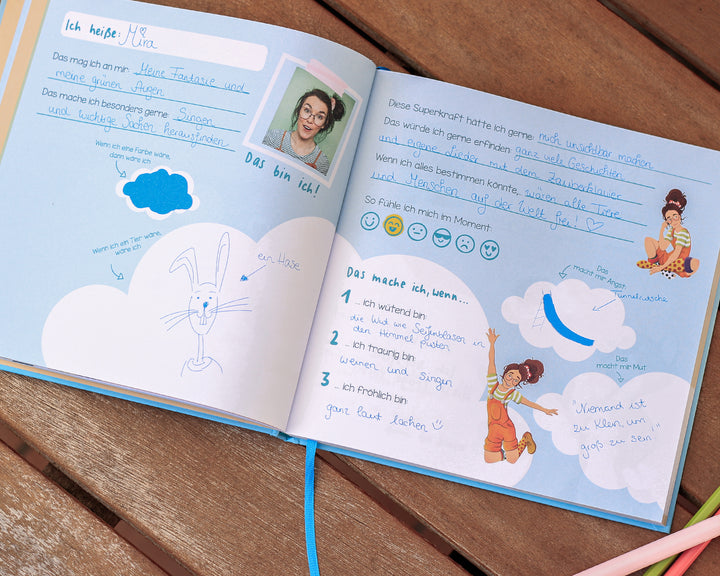 Ich heiße: Mira
Das mag ich an mir: Meine Fantasie und
meine grünen Augen
Das mache ich besonders gerne: Singen
und wichtige Sachen herausfinden
Das bin ich!
Wenn ich eine Farbe wäre,
dann wäre ich
Wenn ich ein Tier wäre,
wäre ich
ein Hase
Diese Superkraft hätte ich gerne: mich unsichtbar machen
Das würde ich gerne erfinden: ganz viele Geschichten
und eigene Lieder mit dem Zauberklavier
Wenn ich alles bestimmen könnte, wären alle Tiere
und Menschen auf der Welt frei!
So fühle ich mich im Moment:
Das mache ich, wenn...
1 ... ich wütend bin:
die Wut wie Seifenblasen in
den Himmel pusten
2 ... ich traurig bin:
weinen und singen
3 ... ich fröhlich bin:
ganz laut lachen
Das
macht mir Angst:
Tunnelrutsche
Das
macht mir Mut:
"Niemand ist
zu klein, um
groß zu sein!"